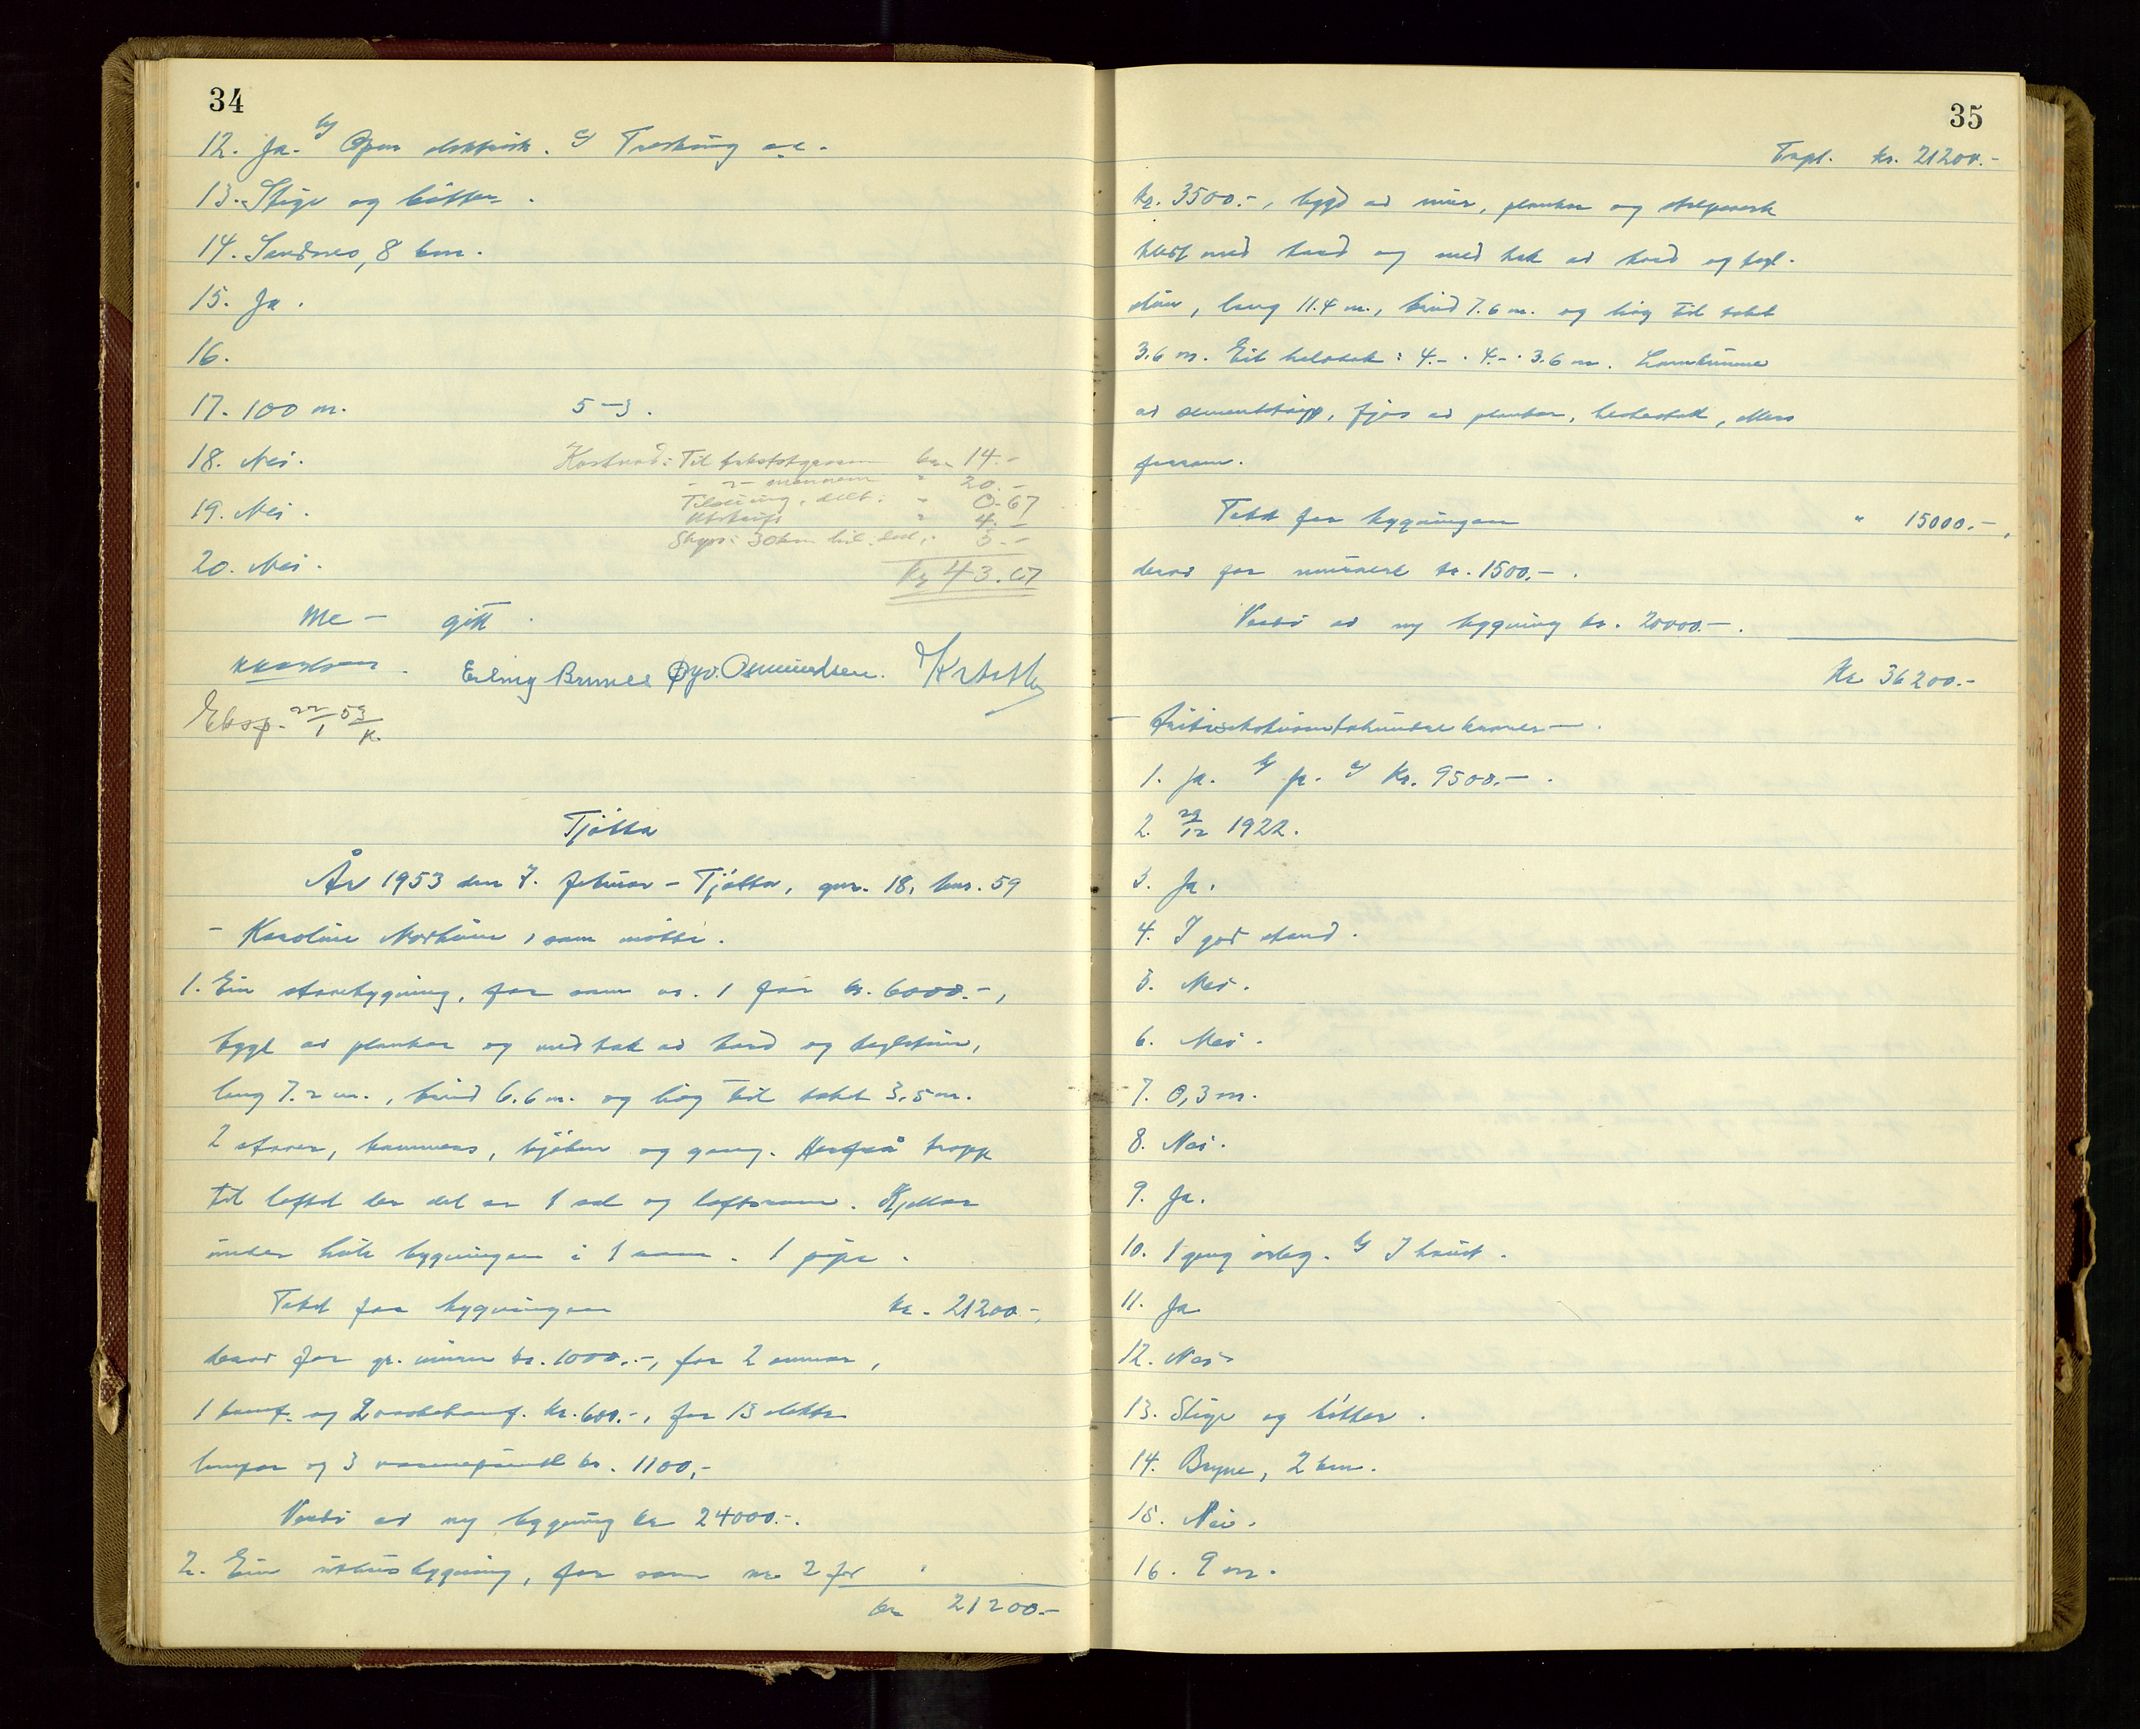 34
12. Ja. b) Open elektrisk. c) Tresking o.l.
13. Stige og bøtter.
14. Sandnes, 8 km.
15. Ja.
16.
17. 100 m. 5-3.
18. Nei. Kostnad: Til takstskjønn kr. 14.-
- " - mennene " 20.-
19. Nei. delt: " 0.67
Utskrift " 4.-
Skyss: 30 km bil. 5.-
20. Nei. Kr 43.67
Me - gitt.
Erling Brunes Øyv. Osmundsen.
Eksp. 22/1 53
K.
Tjøtta
År 1953 den 7. februar - Tjøtta, gnr. 18, bnr. 59
- Karoline Norheim, som møtte.
1. Ein stovebygning, før som nr. 1 for kr. 6000.-,
bygt av plankar og med tak av bord og teglstein,
lang 7.2 m., breid 6.6 m. og høg til taket 3.5 m.
2 stover, kammers, kjøken og gang. Herfrå tropp
til loftet der det er 1 sal og loftsrom. Kjellar
under heile bygningen i 1 rom. 1 pipe.
Takst for bygningen kr. 21200.-,
derav for gr. muren kr. 1000.-, for 2 omnar,
1 komf. og 2 vaskekomf. kr. 600.-, for 13 elektr.
lampar og 3 varmepunkt kr. 1100,-
Verdi av ny bygning kr 24000.-.
2. Ein uthusbygning, før som nr. 2 for
kr 21200.-
35
Trspt. kr. 21200.-
kr. 3500.-, bygd av mur, plankar og stolpeverk
kledt med bord og med tak av bord og tegl-
stein, lang 11.4 m., breid 7.6 m. og høg til taket
3.6 m. Eit halvtak: 4.- · 4.- · 3.6 m.
av sementstøyp, fjøs av plankar, hestestall, ellers
forrom.
Takst for bygningen " 15000.-,
derav for murverk kr. 1500,-.
Verdi av ny bygning kr. 20000.-.
Kr 36200.-
1. Ja. b) Ja. c) Kr. 9500.-.
2. 29/12 1922.
3. Ja.
4. I god stand.
5. Nei.
6. Nei.
7. 0,3 m.
8. Nei.
9. Ja.
10. 1 gang årleg. b) I haust.
11. Ja
12. Nei
13. Stige og bøtter.
14. Bryne, 2 km.
15. Nei.
16. 9 m.